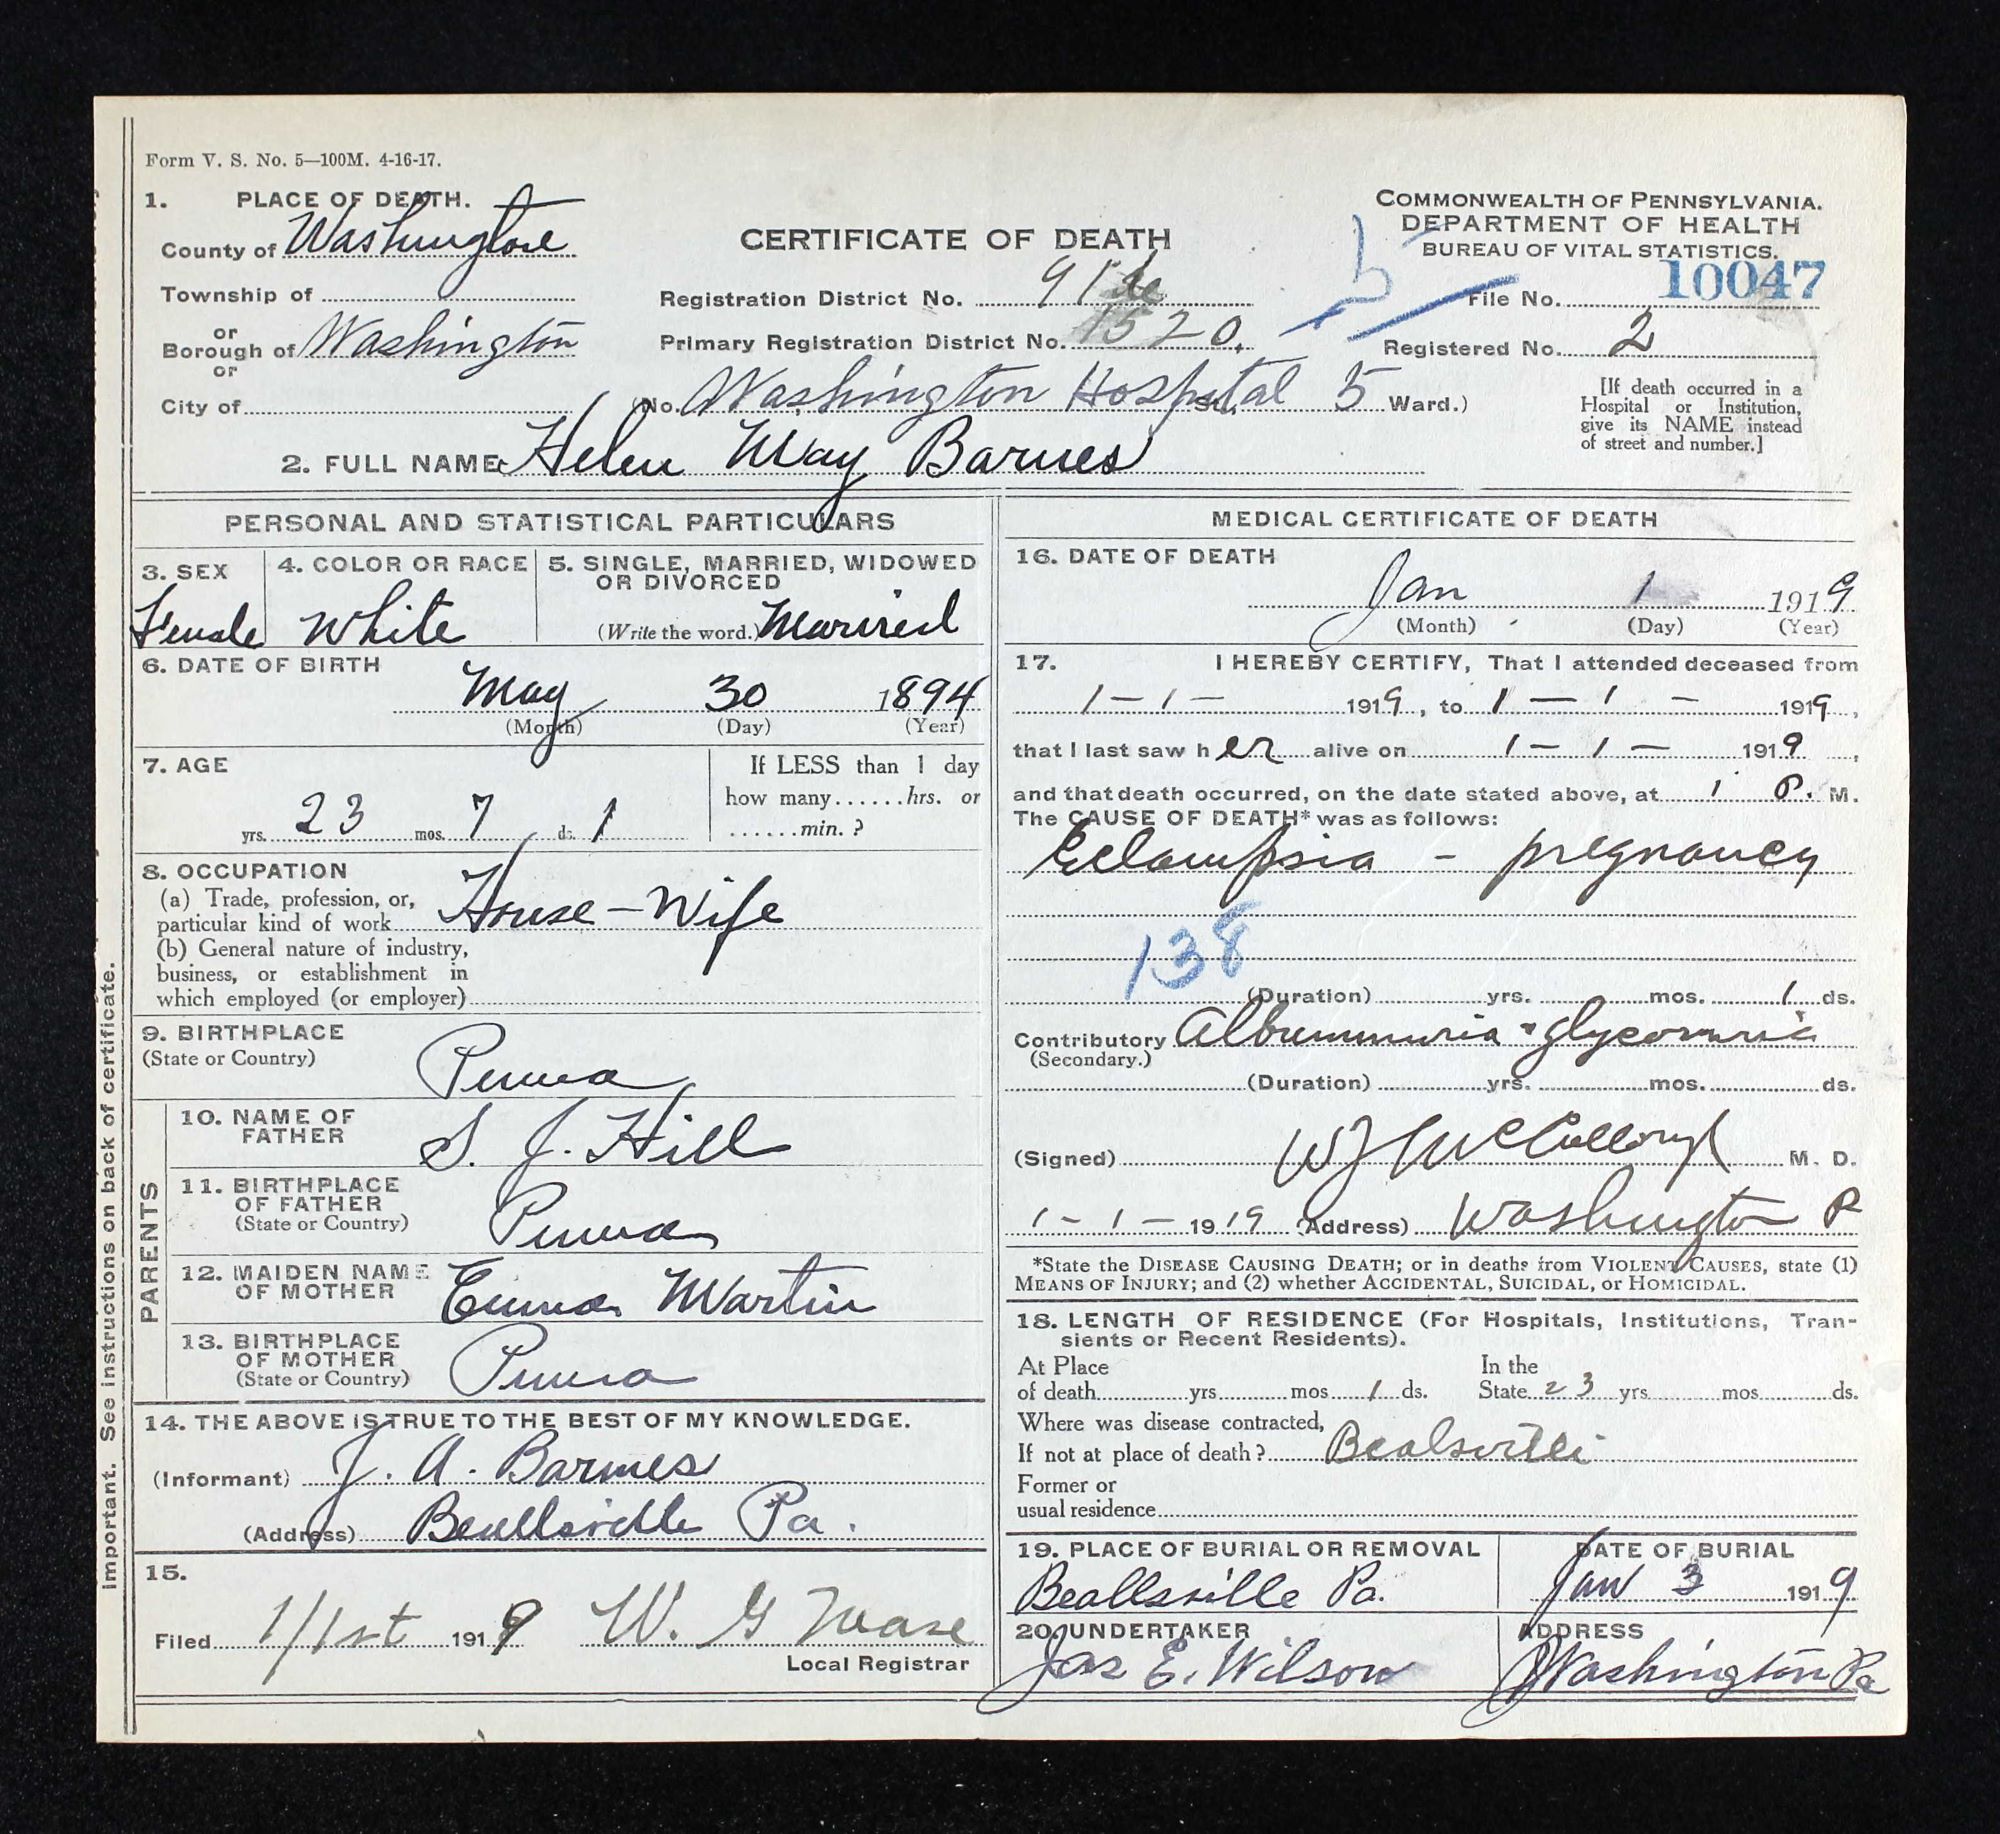 Form V. S. No. 5—100M. 4-16-17.
1. PLACE OF DEATH.
County of Washington
Township of
or
Borough of Washington
or
City of
CERTIFICATE OF DEATH
Registration District No. 91
Primary Registration District No. 1520.
(No. Washington Hospital St. 5 Ward.)
COMMONWEALTH OF PENNSYLVANIA.
DEPARTMENT OF HEALTH
BUREAU OF VITAL STATISTICS.
File No. 10047
Registered No. 2
[If death occurred in a
Hospital or Institution,
give its NAME instead
of street and number.]
2. FULL NAME Helen May Barnes
PERSONAL AND STATISTICAL PARTICULARS
3. SEX
Female
4. COLOR OR RACE
White
5. SINGLE, MARRIED, WIDOWED
OR DIVORCED
(Write the word.) Married
6. DATE OF BIRTH
May 30 1894
(Month) (Day) (Year)
7. AGE
yrs. 23 mos. 7 ds. 1
If LESS than 1 day
how many......hrs. or
......min. ?
8. OCCUPATION
(a) Trade, profession, or,
particular kind of work House-Wife
(b) General nature of industry,
business, or establishment in
which employed (or employer)
9. BIRTHPLACE
(State or Country)
Penna
PARENTS
10. NAME OF
FATHER
S. J. Hill
11. BIRTHPLACE
OF FATHER
(State or Country)
Penna
12. MAIDEN NAME
OF MOTHER
Emma Martin
13. BIRTHPLACE
OF MOTHER
(State or Country)
Penna
14. THE ABOVE IS TRUE TO THE BEST OF MY KNOWLEDGE.
(Informant) J. A. Barnes
(Address) Beallsville Pa.
15.
Filed 1/1st 1919 W. G
Local Registrar
Important. See instructions on back of certificate.
MEDICAL CERTIFICATE OF DEATH
16. DATE OF DEATH
Jan 1 1919
(Month) (Day) (Year)
17. I HEREBY CERTIFY, That I attended deceased from
1-1- 1919, to 1-1- 1919,
that I last saw her alive on 1-1- 1919,
and that death occurred, on the date stated above, at 1 P. M.
The CAUSE OF DEATH* was as follows:
Eclampsia - pregnancy
138
(Duration) yrs. mos. 1 ds.
Contributory Albuminuria & glycosuria
(Secondary.)
(Duration) yrs. mos. ds.
(Signed) W J McCullough M. D.
1-1- 1919 (Address) Washington P
*State the DISEASE CAUSING DEATH; or in deaths from VIOLENT CAUSES, state (1)
MEANS OF INJURY; and (2) whether ACCIDENTAL, SUICIDAL, or HOMICIDAL.
18. LENGTH OF RESIDENCE (For Hospitals, Institutions, Tran-
sients or Recent Residents).
At Place
of death yrs mos 1 ds.
In the
State 23 yrs mos ds.
Where was disease contracted,
If not at place of death? Bealsville
Former or
usual residence
19. PLACE OF BURIAL OR REMOVAL
Beallsville Pa.
DATE OF BURIAL
Jan 3 1919
20. UNDERTAKER
Jas E. Wilson
ADDRESS
Washington Pa